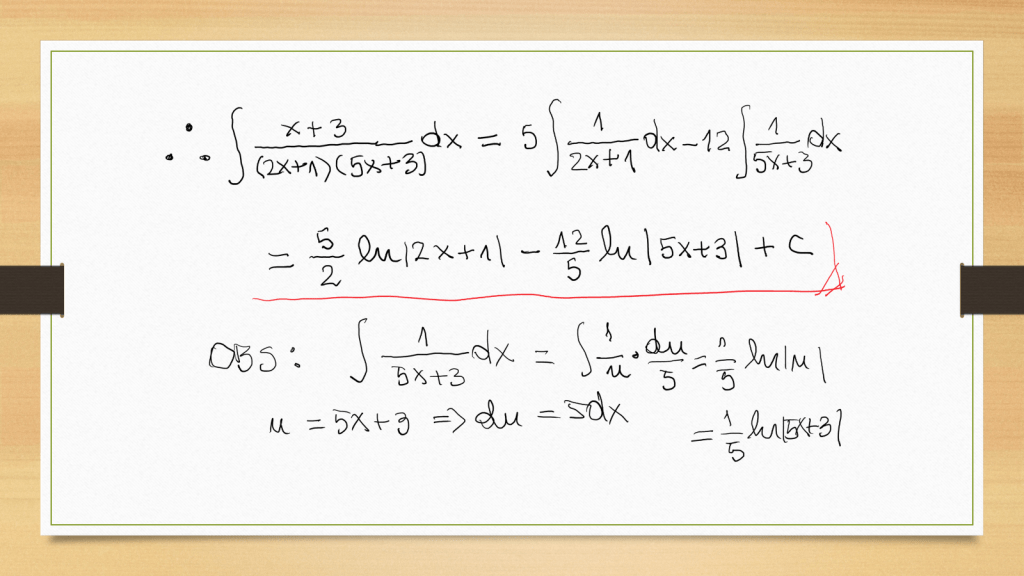 ∴ ∫ (x+3)/((2x+1)(5x+3)) dx = 5 ∫ 1/(2x+1) dx - 12 ∫ 1/(5x+3) dx
= 5/2 ln|2x+1| - 12/5 ln|5x+3| + C
OBS: ∫ 1/(5x+3) dx = ∫ 1/u · du/5 = 1/5 ln|u|
u = 5x+3 => du = 5dx = 1/5 ln|5x+3|